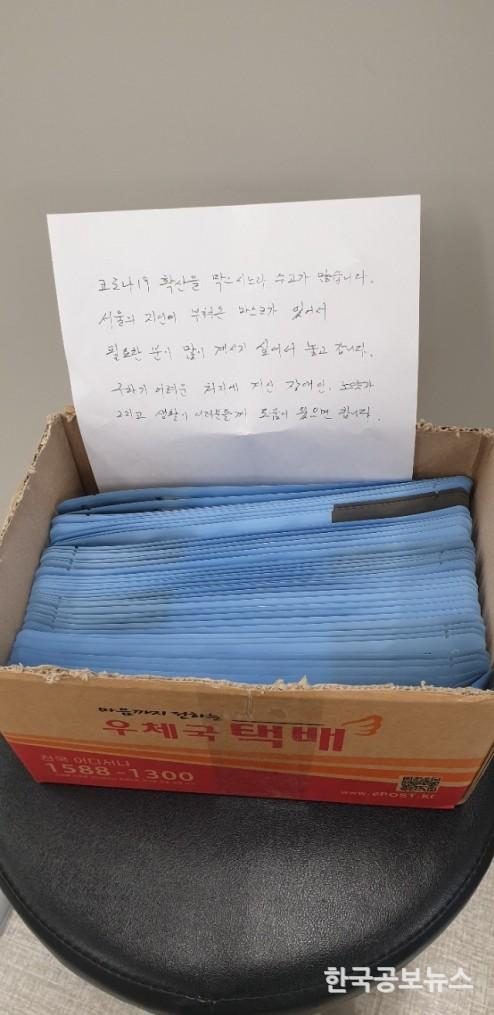 코로나19 확산을 막으시느라 수고가 많습니다.
서울의 지인이 부쳐온 마스크가 있어서
필요한 분이 많이 계시지 싶어서 놓고 갑니다.
구하기 어려운 처지에 지신 장애인, 노약자
그리고 생활이 어려분들게 도움이 됐으면 합니다.
마음까지 전하는
우체국 택배
전국 어디서나
1588-1300
www.ePOST.kr
한국공보뉴스